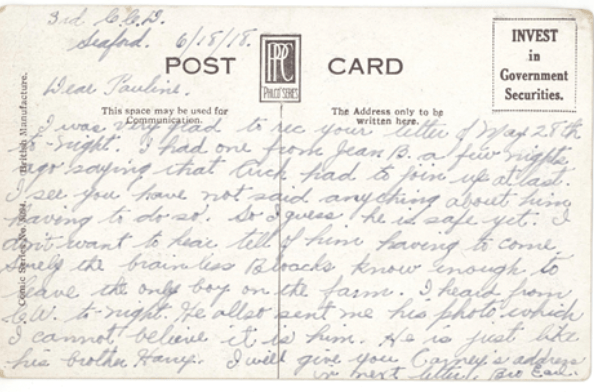 3rd C.C.D.
Seaford. 6/18/18.
POST CARD
PPC
PHILCO SERIES
INVEST
in
Government
Securities.
Dear Pauline.
This space may be used for
Communication.
The Address only to be
written here.
I was very glad to rec your letter of May 28th
to-night. I had one from Jean B. a few nights
ago saying that had to join up at last.
I see you have not said anything about him
having to do so. So I guess he is safe yet. I
don't want to hear tell of him having to come
surely the brainless know enough to
leave the only boy on the farm. I heard from
C.W. to-night. He allso sent me his photo which
I cannot believe it is him. He is just like
his brother Harry. I will give you address
in next letter. Bro
Comic Series No.
British Manufacture.